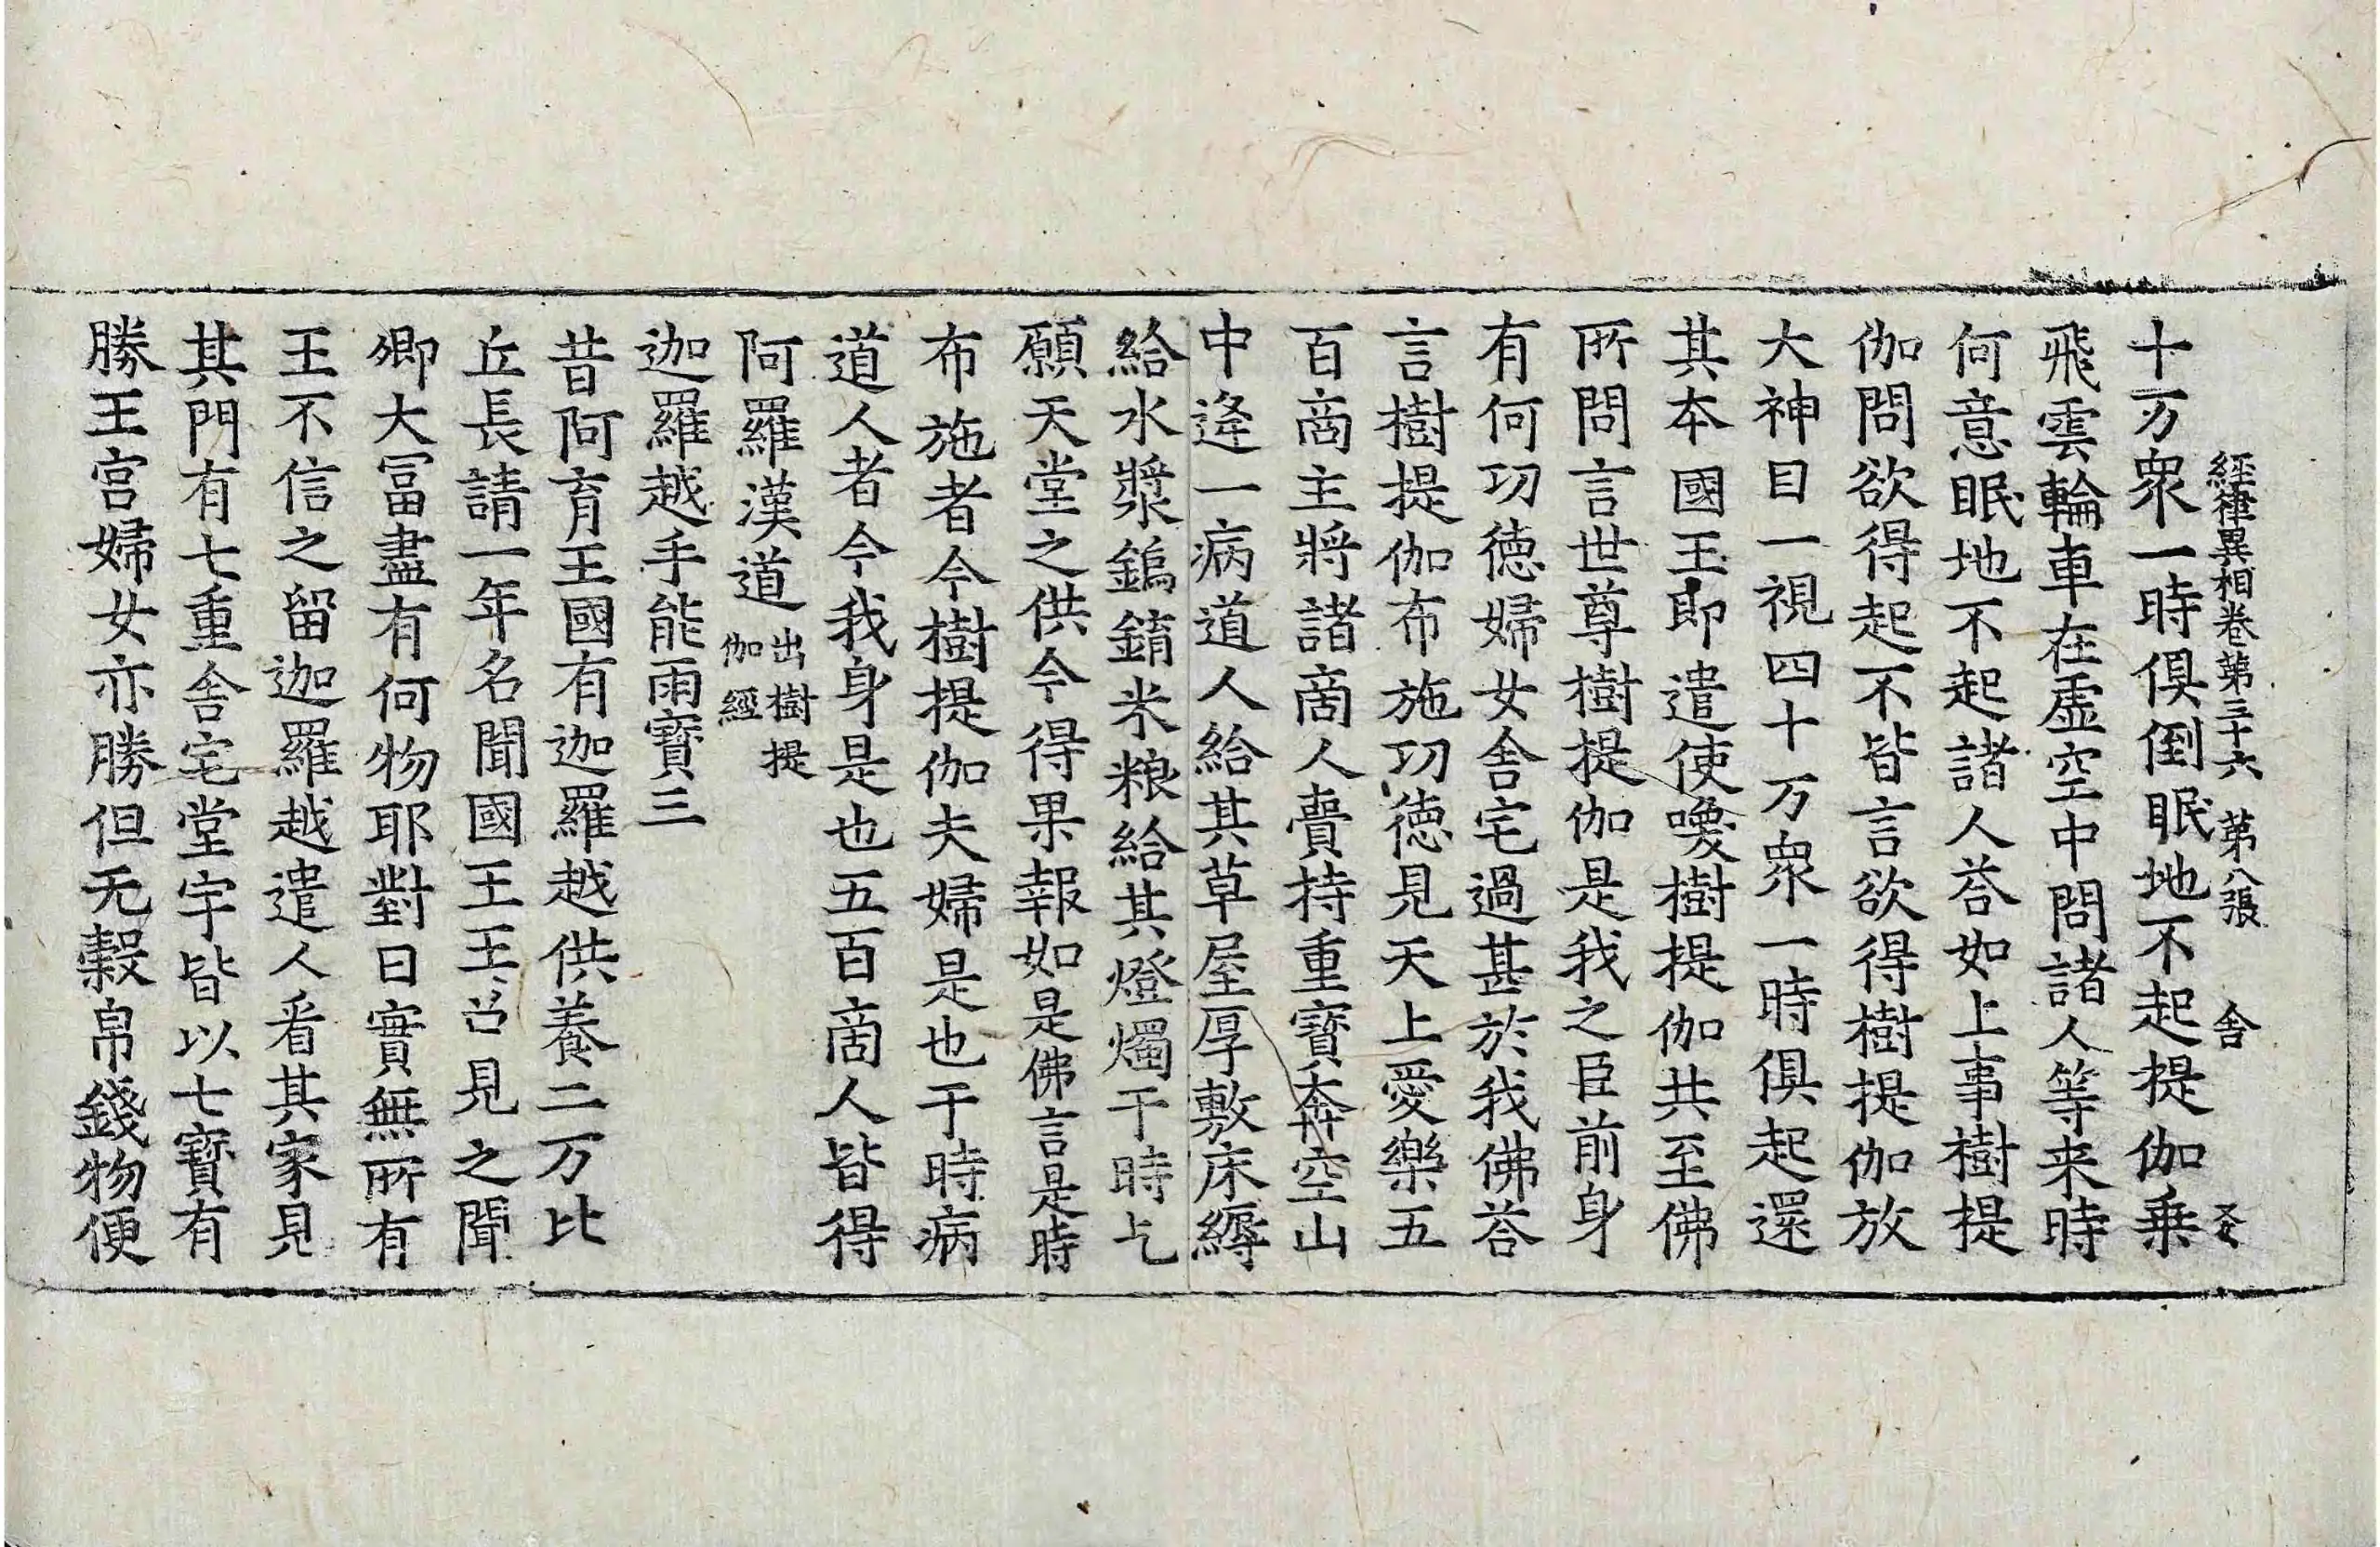 經律異相卷第三十六 第八張 舍
十万衆一時俱倒眠地不起提伽乗
飛雲輪車在虛空中問諸人等来時
何意眠地不起諸人荅如上事樹提
伽問欲得起不皆言欲得樹提伽放
大神目一視四十万衆一時俱起還
其本國王即遣使喚樹提伽共至佛
所問言世尊樹提伽是我之臣前身
有何功徳婦女舍宅過甚於我佛荅
言樹提伽布施功徳見天上愛樂五
百啇主將諸啇人賷持重寳奔空山
中逢一病道人給其草屋厚敷床縟
給水漿鎢錥米粮給其燈燭于時乞
願天堂之供今得果報如是佛言是時
布施者今樹提伽夫婦是也于時病
道人者今我身是也五百啇人皆得
阿羅漢道 出樹提伽經
迦羅越手能雨寳三
昔阿育王國有迦羅越供養二万比
丘長請一年名聞國王王召見之聞
卿大冨盡有何物耶對曰實無所有
王不信之留迦羅越遣人看其家見
其門有七重舍宅堂宇皆以七寳有
勝王宮婦女亦勝但无糓帛錢物便